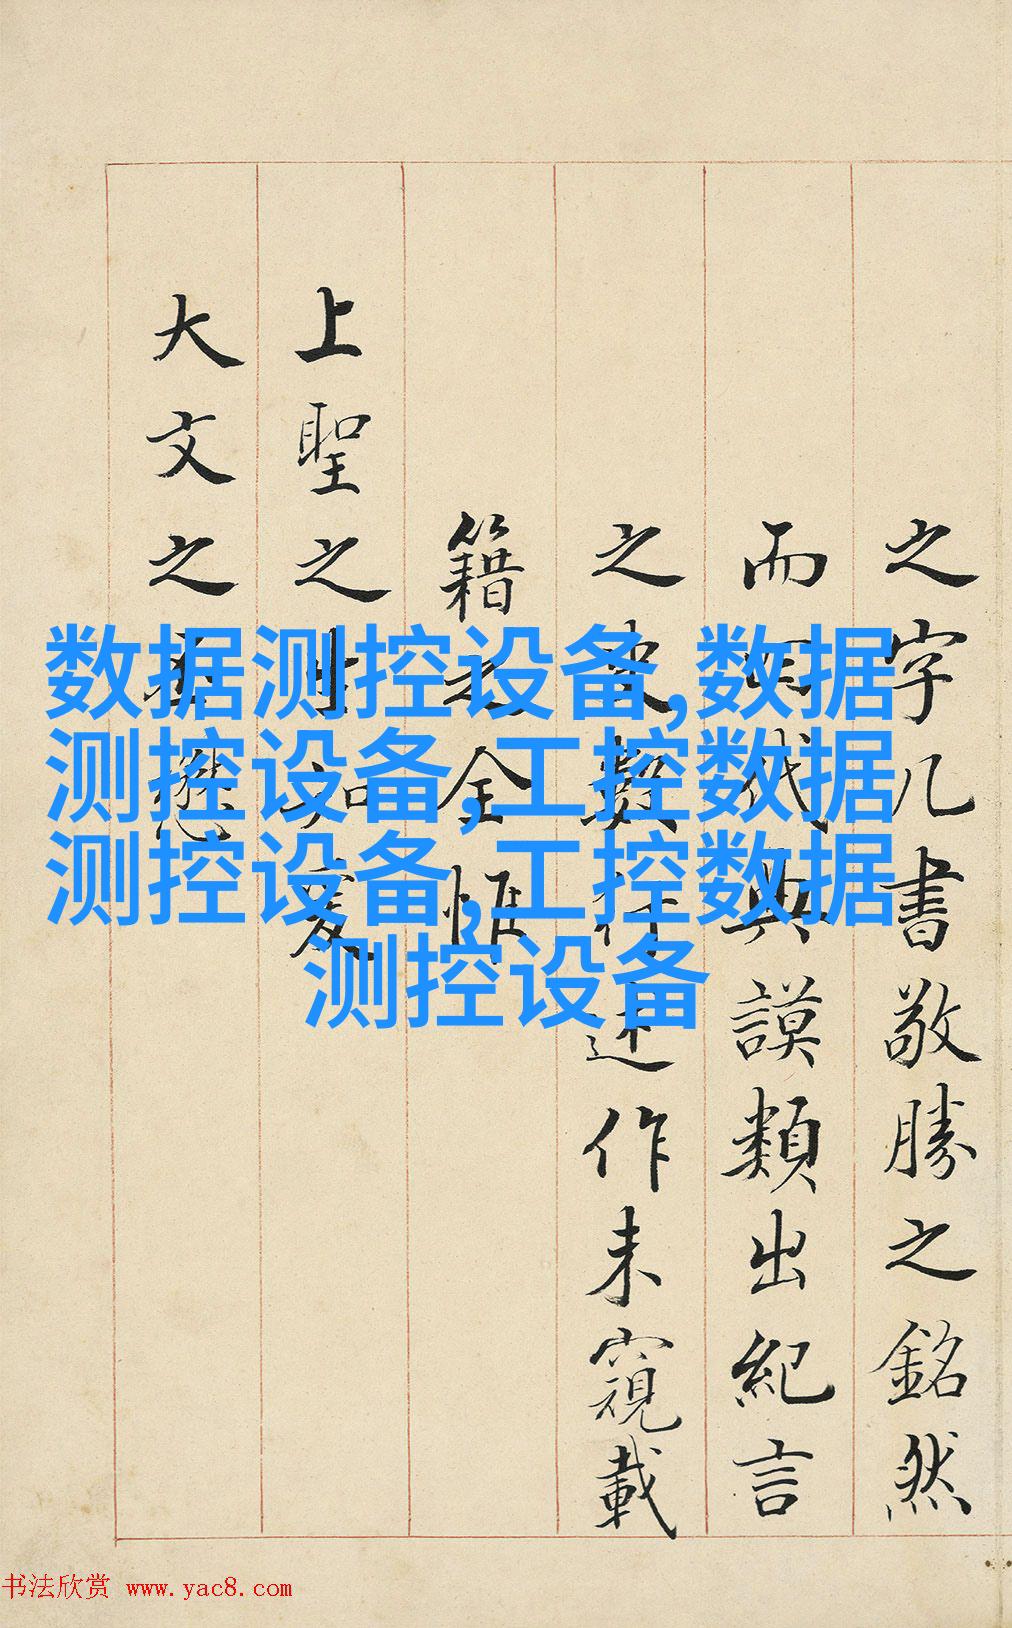 之字几書敬勝之銘然
而代典謨類出紀言
之史數行述作未窺載
籍之全惟
上聖之
大文之
数据测控设备,数据
测控设备,工控数据
测控设备,工控数据
测控设备
书法欣赏 www.yac8.com